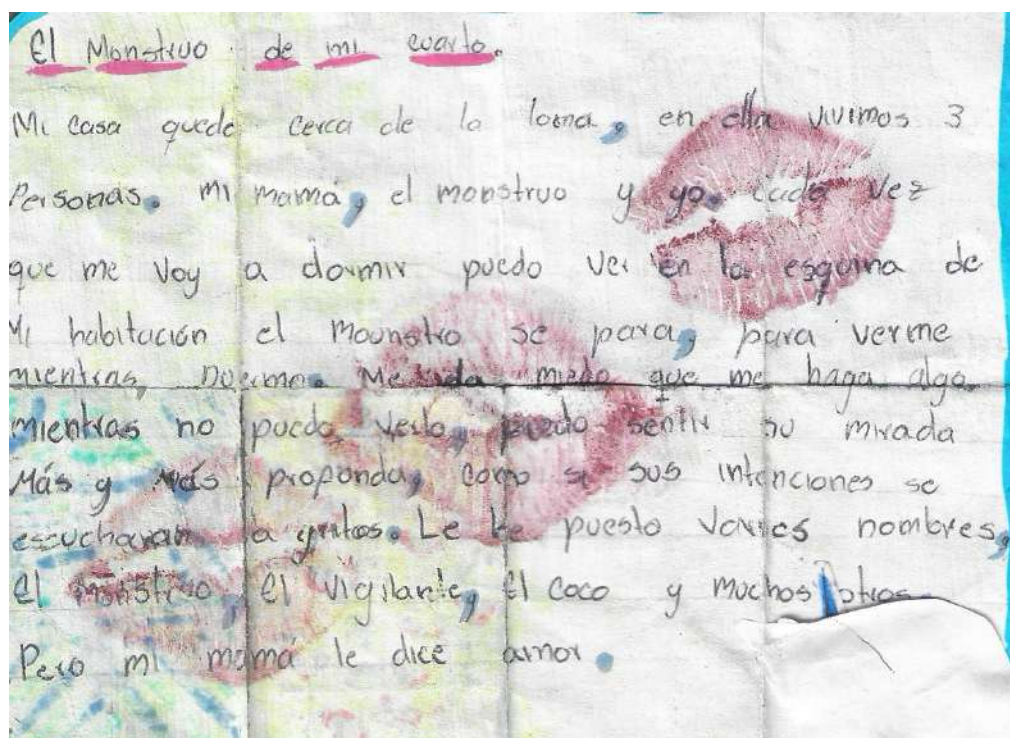 El Monstruo de mi cuarto.
Mi casa quede cerca de la loma, en ella vivimos 3
Personas. mi mamá, el monstruo y yo. cada vez
que me voy a dormir puedo ver en la esquina de
Mi habitación el mounstro se para, para verme
mientras Duermo. Me da miedo que me haga algo.
mientras no puedo verlo, puedo sentir su mirada
Más y más profonda, como si sus intenciones se
escucharan a gritos. Le he puesto varios nombres,
El monstruo, El vigilante, El coco y muchos otros.
Pero mi mamá le dice amor.